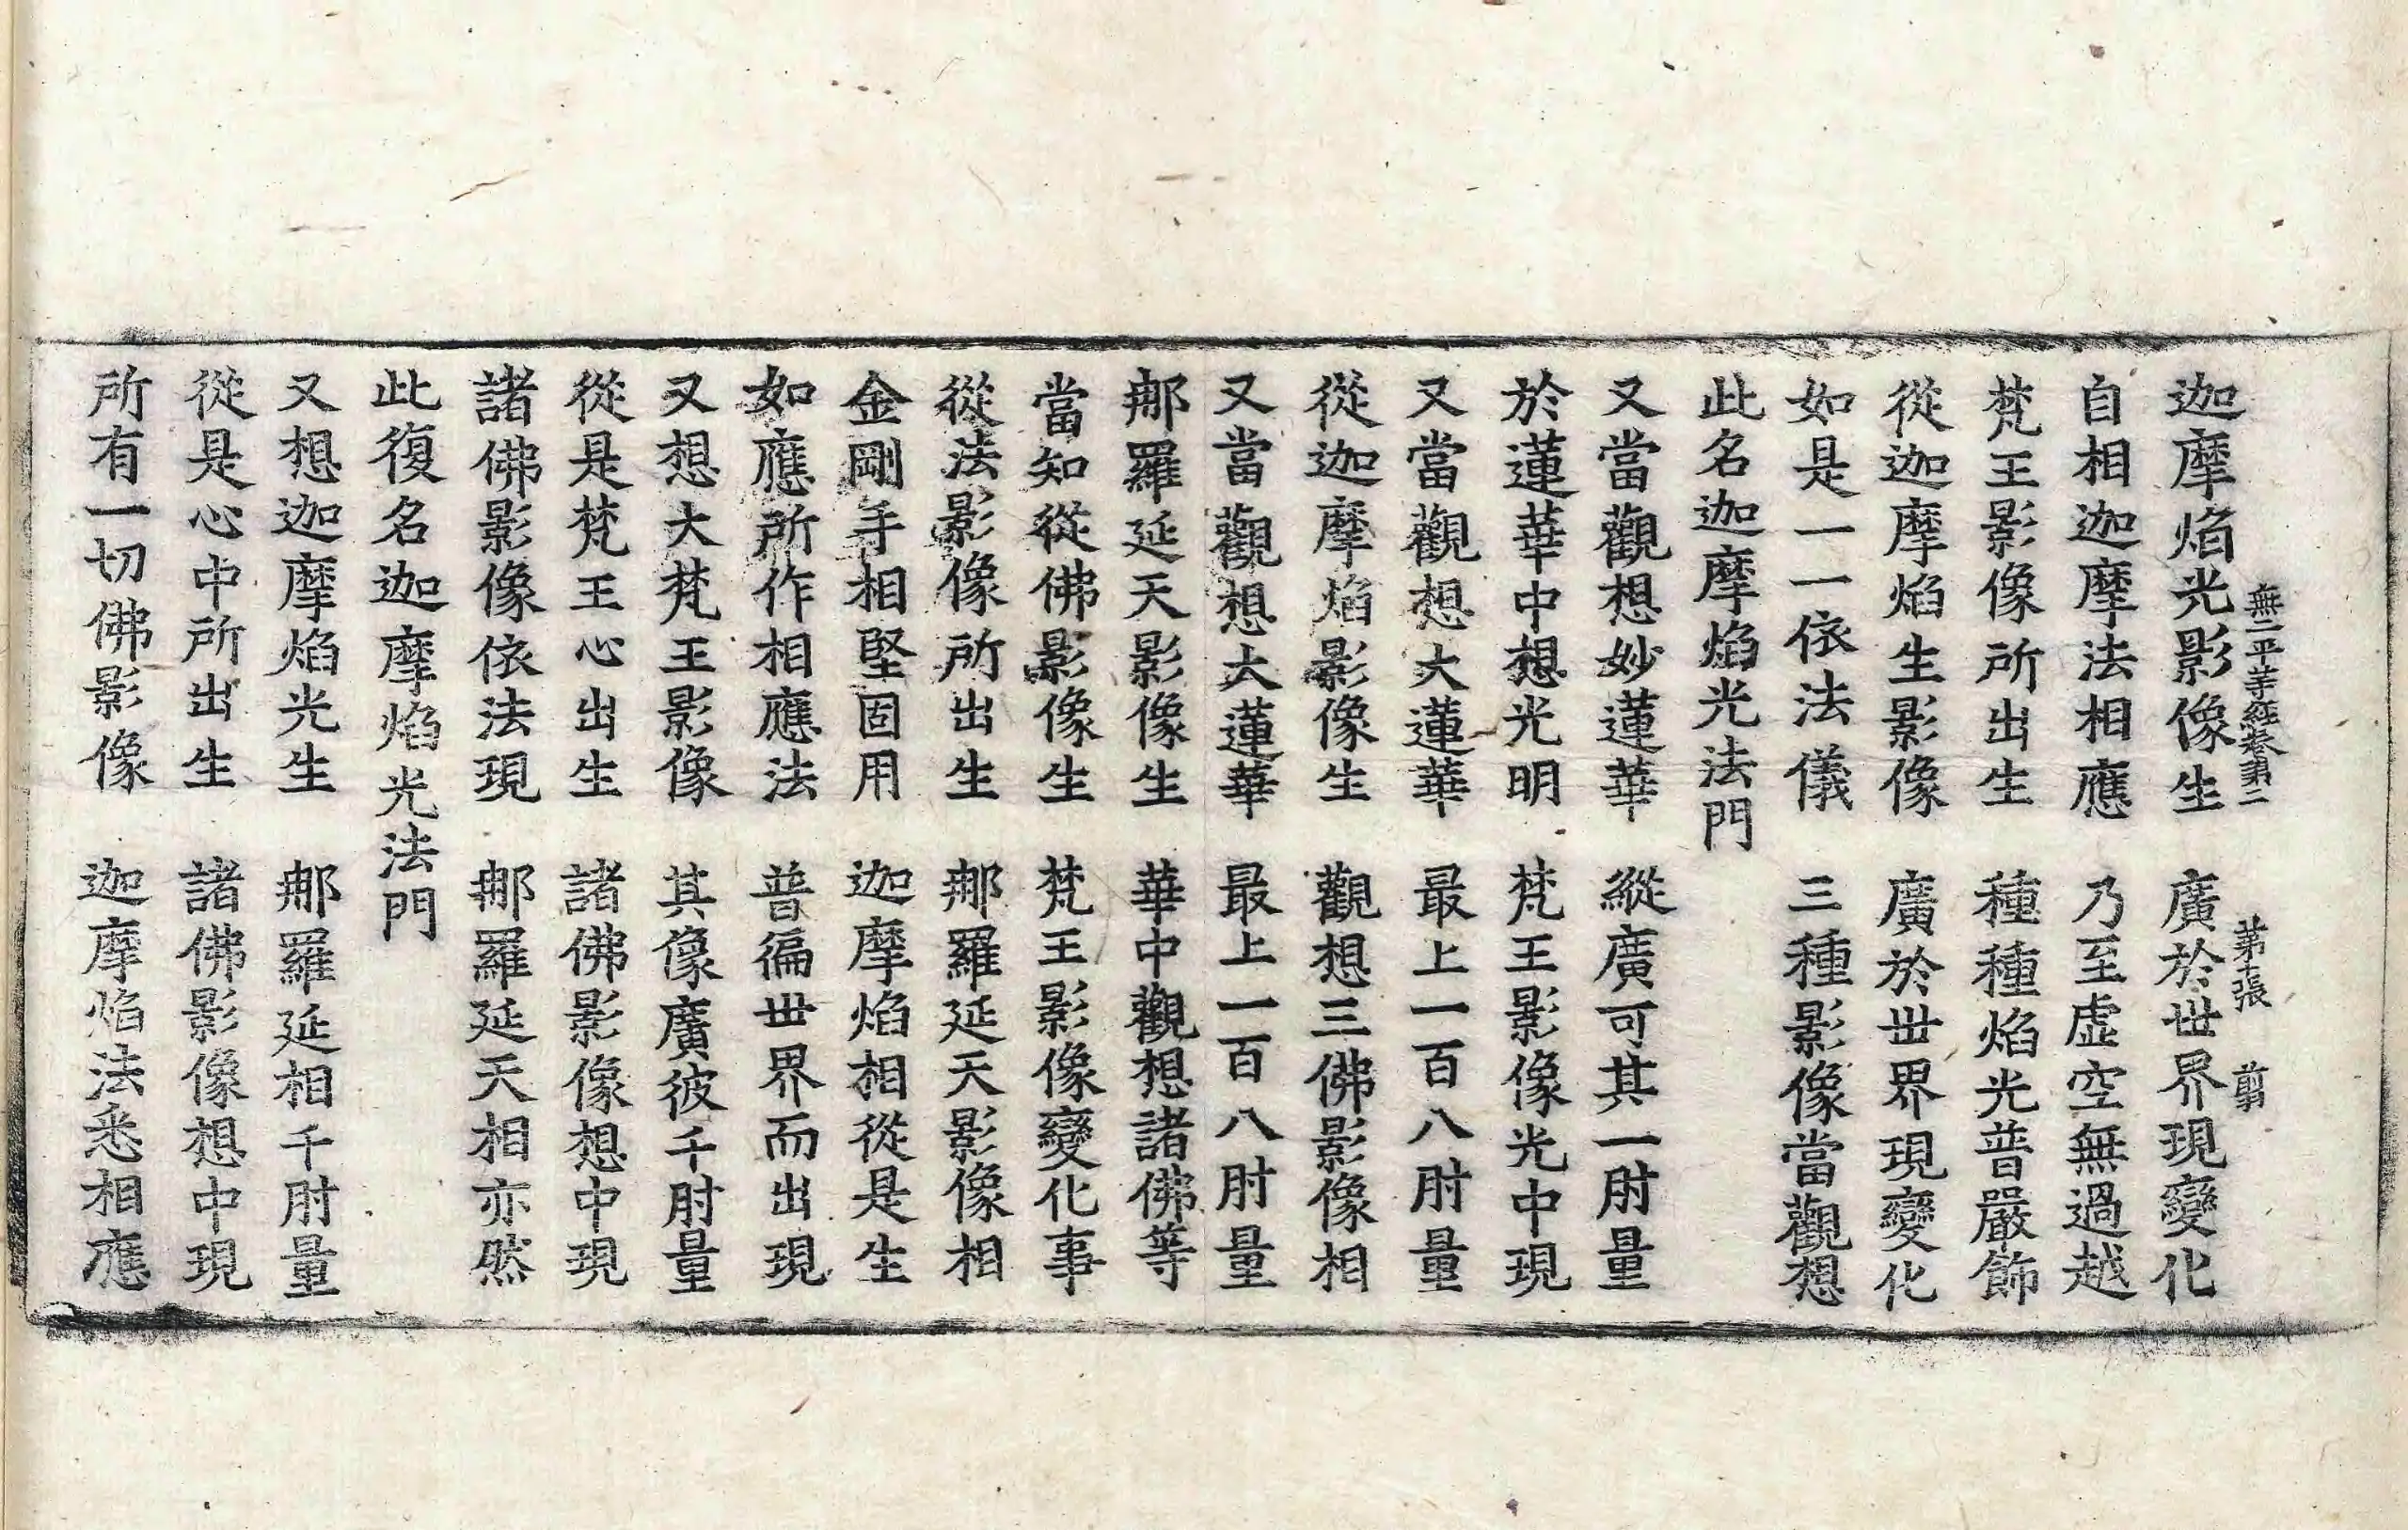 無二平等經卷第二 第十張 剪
迦摩焰光影像生 廣於世界現變化
自相迦摩法相應 乃至虛空無過越
梵王影像所出生 種種焰光普嚴飾
從迦摩焰生影像 廣於世界現變化
如是一一依法儀 三種影像當觀想
此名迦摩焰光法門
又當觀想妙蓮華 縱廣可其一肘量
於蓮華中想光明 梵王影像光中現
又當觀想大蓮華 最上一百八肘量
從迦摩焰影像生 觀想三佛影像相
又當觀想大蓮華 最上一百八肘量
那羅延天影像生 華中觀想諸佛等
當知從佛影像生 梵王影像變化事
從法影像所出生 那羅延天影像相
金剛手相堅固用 迦摩焰相從是生
如應所作相應法 普徧世界而出現
又想大梵王影像 其像廣彼千肘量
從是梵王心出生 諸佛影像想中現
諸佛影像依法現 那羅延天相亦然
此復名迦摩焰光法門
又想迦摩焰光生 那羅延相千肘量
從是心中所出生 諸佛影像想中現
所有一切佛影像 迦摩焰法悉相應